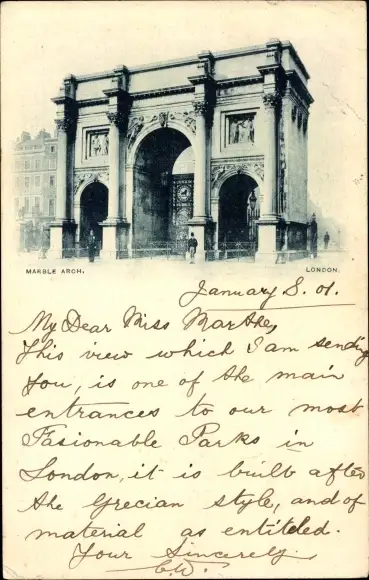 MARBLE ARCH.
LONDON.
January 8. 01.
My Dear Miss Marthe,
This view which I am sending
you, is one of the main
entrances to our most
Fasionable Parks in
London, it is built after
the Grecian style, and of
material as entitled.
Your Sincerely